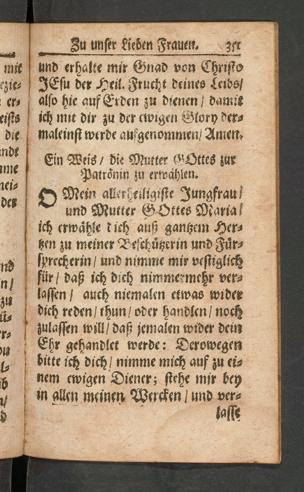 Zu unser Lieben Frauen. 351
und erhalte mir Gnad von Christo
JEsu der Heil. Frucht deines Leibs/
also hie auf Erden zu dienen/ damit
ich mit dir zu der ewigen Glory der-
maleinst werde aufgenommen/ Amen.
Ein Weis/ die Mutter GOttes zur
Patrönin zu erwählen.
O Mein allerheiligiste Jungfrau/
und Mutter GOttes Maria/
ich erwähle dich auß gantzem Her-
tzen zu meiner Beschützerin und Für-
sprecherin/ und nimme mir vestiglich
für/ daß ich dich nimmermehr ver-
lassen/ auch niemalen etwas wider
dich reden/ thun/ oder handlen/ noch
zulassen will/ daß jemalen wider dein
Ehr gehandlet werde: Derowegen
bitte ich dich/ nimme mich auf zu ei-
nem ewigen Diener; stehe mir bey
in allen meinen Wercken/ und ver-
lasse